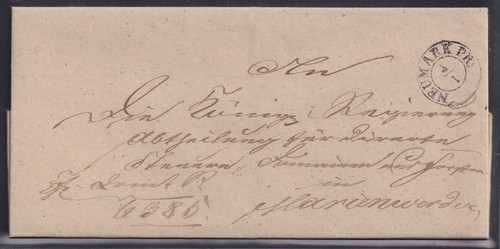 NEUMARK PR:
An
Die Königl: Regierung
Abtheilung für directe
Steuern Domainen und Forsten
in
Marienwerder
6385